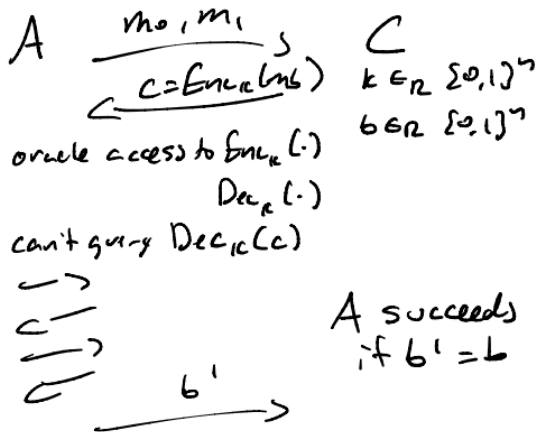 A m₀, m₁ C
c = Enc_k(m_b) k ∈_R {0,1}ⁿ
b ∈_R {0,1}ⁿ
oracle access to Enc_k(·)
Dec_k(·)
can't query Dec_k(c)
A succeeds
if b' = b
b'